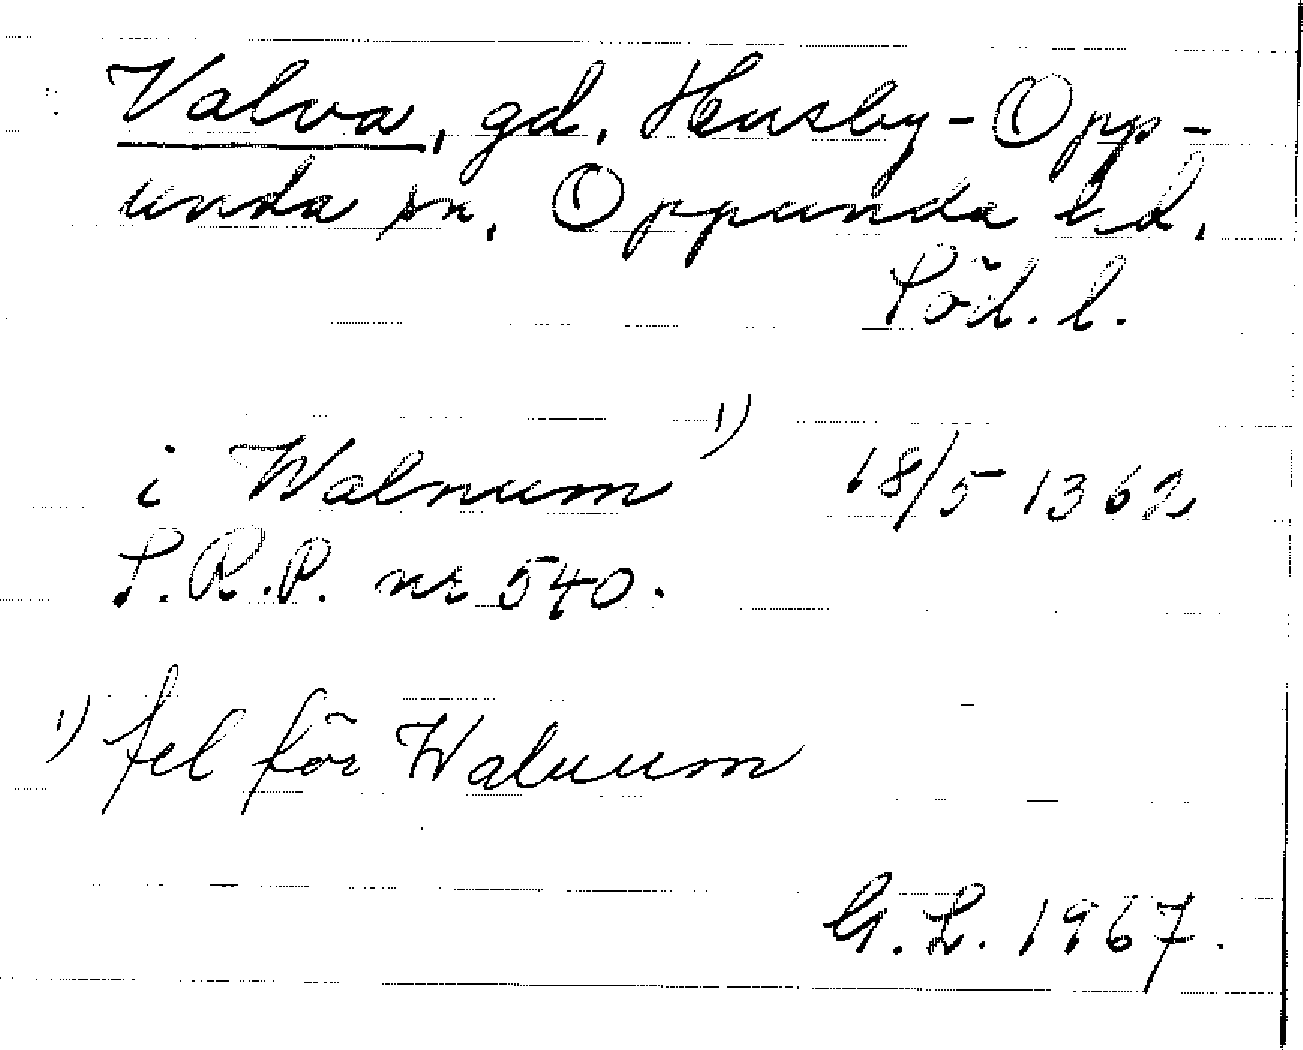 Valva, gd, Husby-Opp-
unda sn, Oppunda hd,
Söd. l.
i Walnum 1) 18/5 1362
S.R.P. nr 540.
1) fel för Waluum
G. L. 1967.